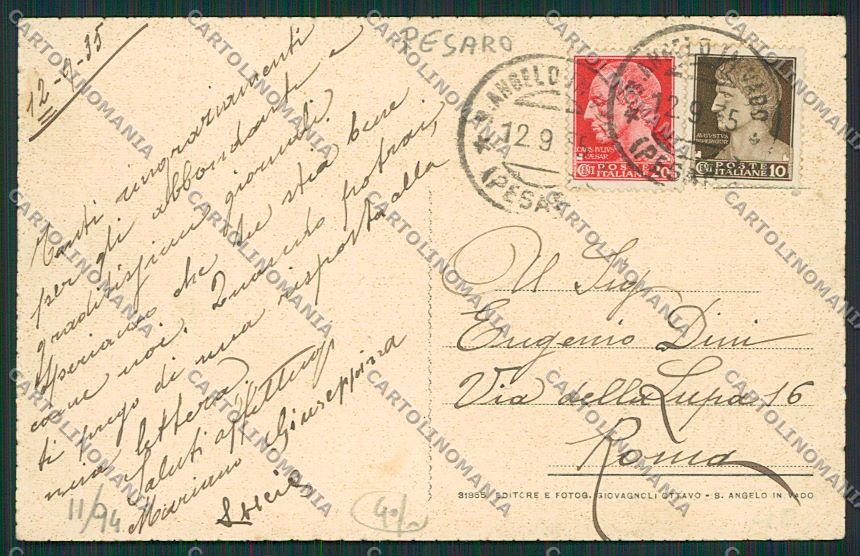 12-9-35
Tanti ringraziamenti
per gli abbondanti e
graditissimi giornali.
Speriamo che tu stia bene
come noi. Quando potrai,
ti prego di una risposta alla
mia lettera.
Saluti affettuosi
Mariano Giuseppina
Lucia
11/94
40/
PESARO
S. ANGELO IN VADO
12.9.35
(PESARO)
S. ANGELO IN VADO
12.9.35
(PESARO)
CAIVS IVLIVS
CAESAR
CENT. POSTE ITALIANE 20
AVGVSTVS
IMPERATOR
CENT. POSTE ITALIANE 10
Al Sig.
Eugenio Dini
Via della Lupa 16
Roma
31955 EDITORE E FOTOG. GIOVAGNOLI OTTAVO - S. ANGELO IN VADO
CARTOLINOMANIA